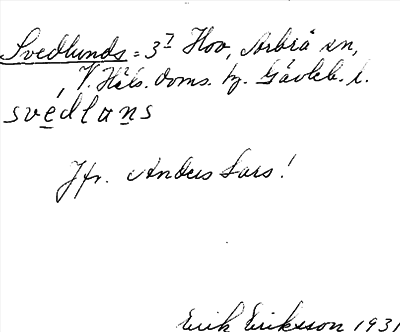 Svedlunds = 3⁷ Hov, Arbrå sn,
V. Häls. doms. hz. Gävleb. l.
svedlans
Jfr. Anders Lars!
Erik Eriksson 1931